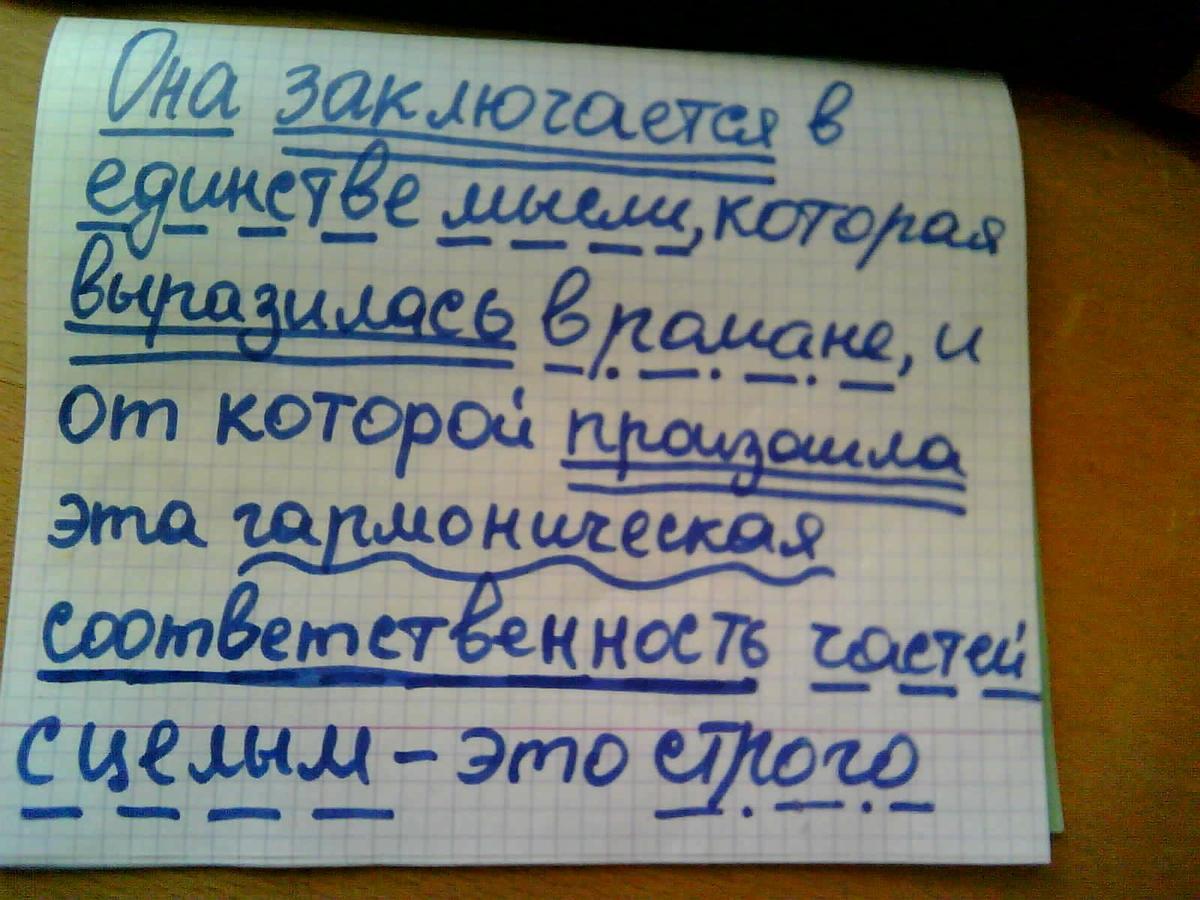 Она заключается в
единстве мысли, которая
выразилась в романе, и
от которой произошла
эта гармоническая
соответственность частей
с целым – это строго